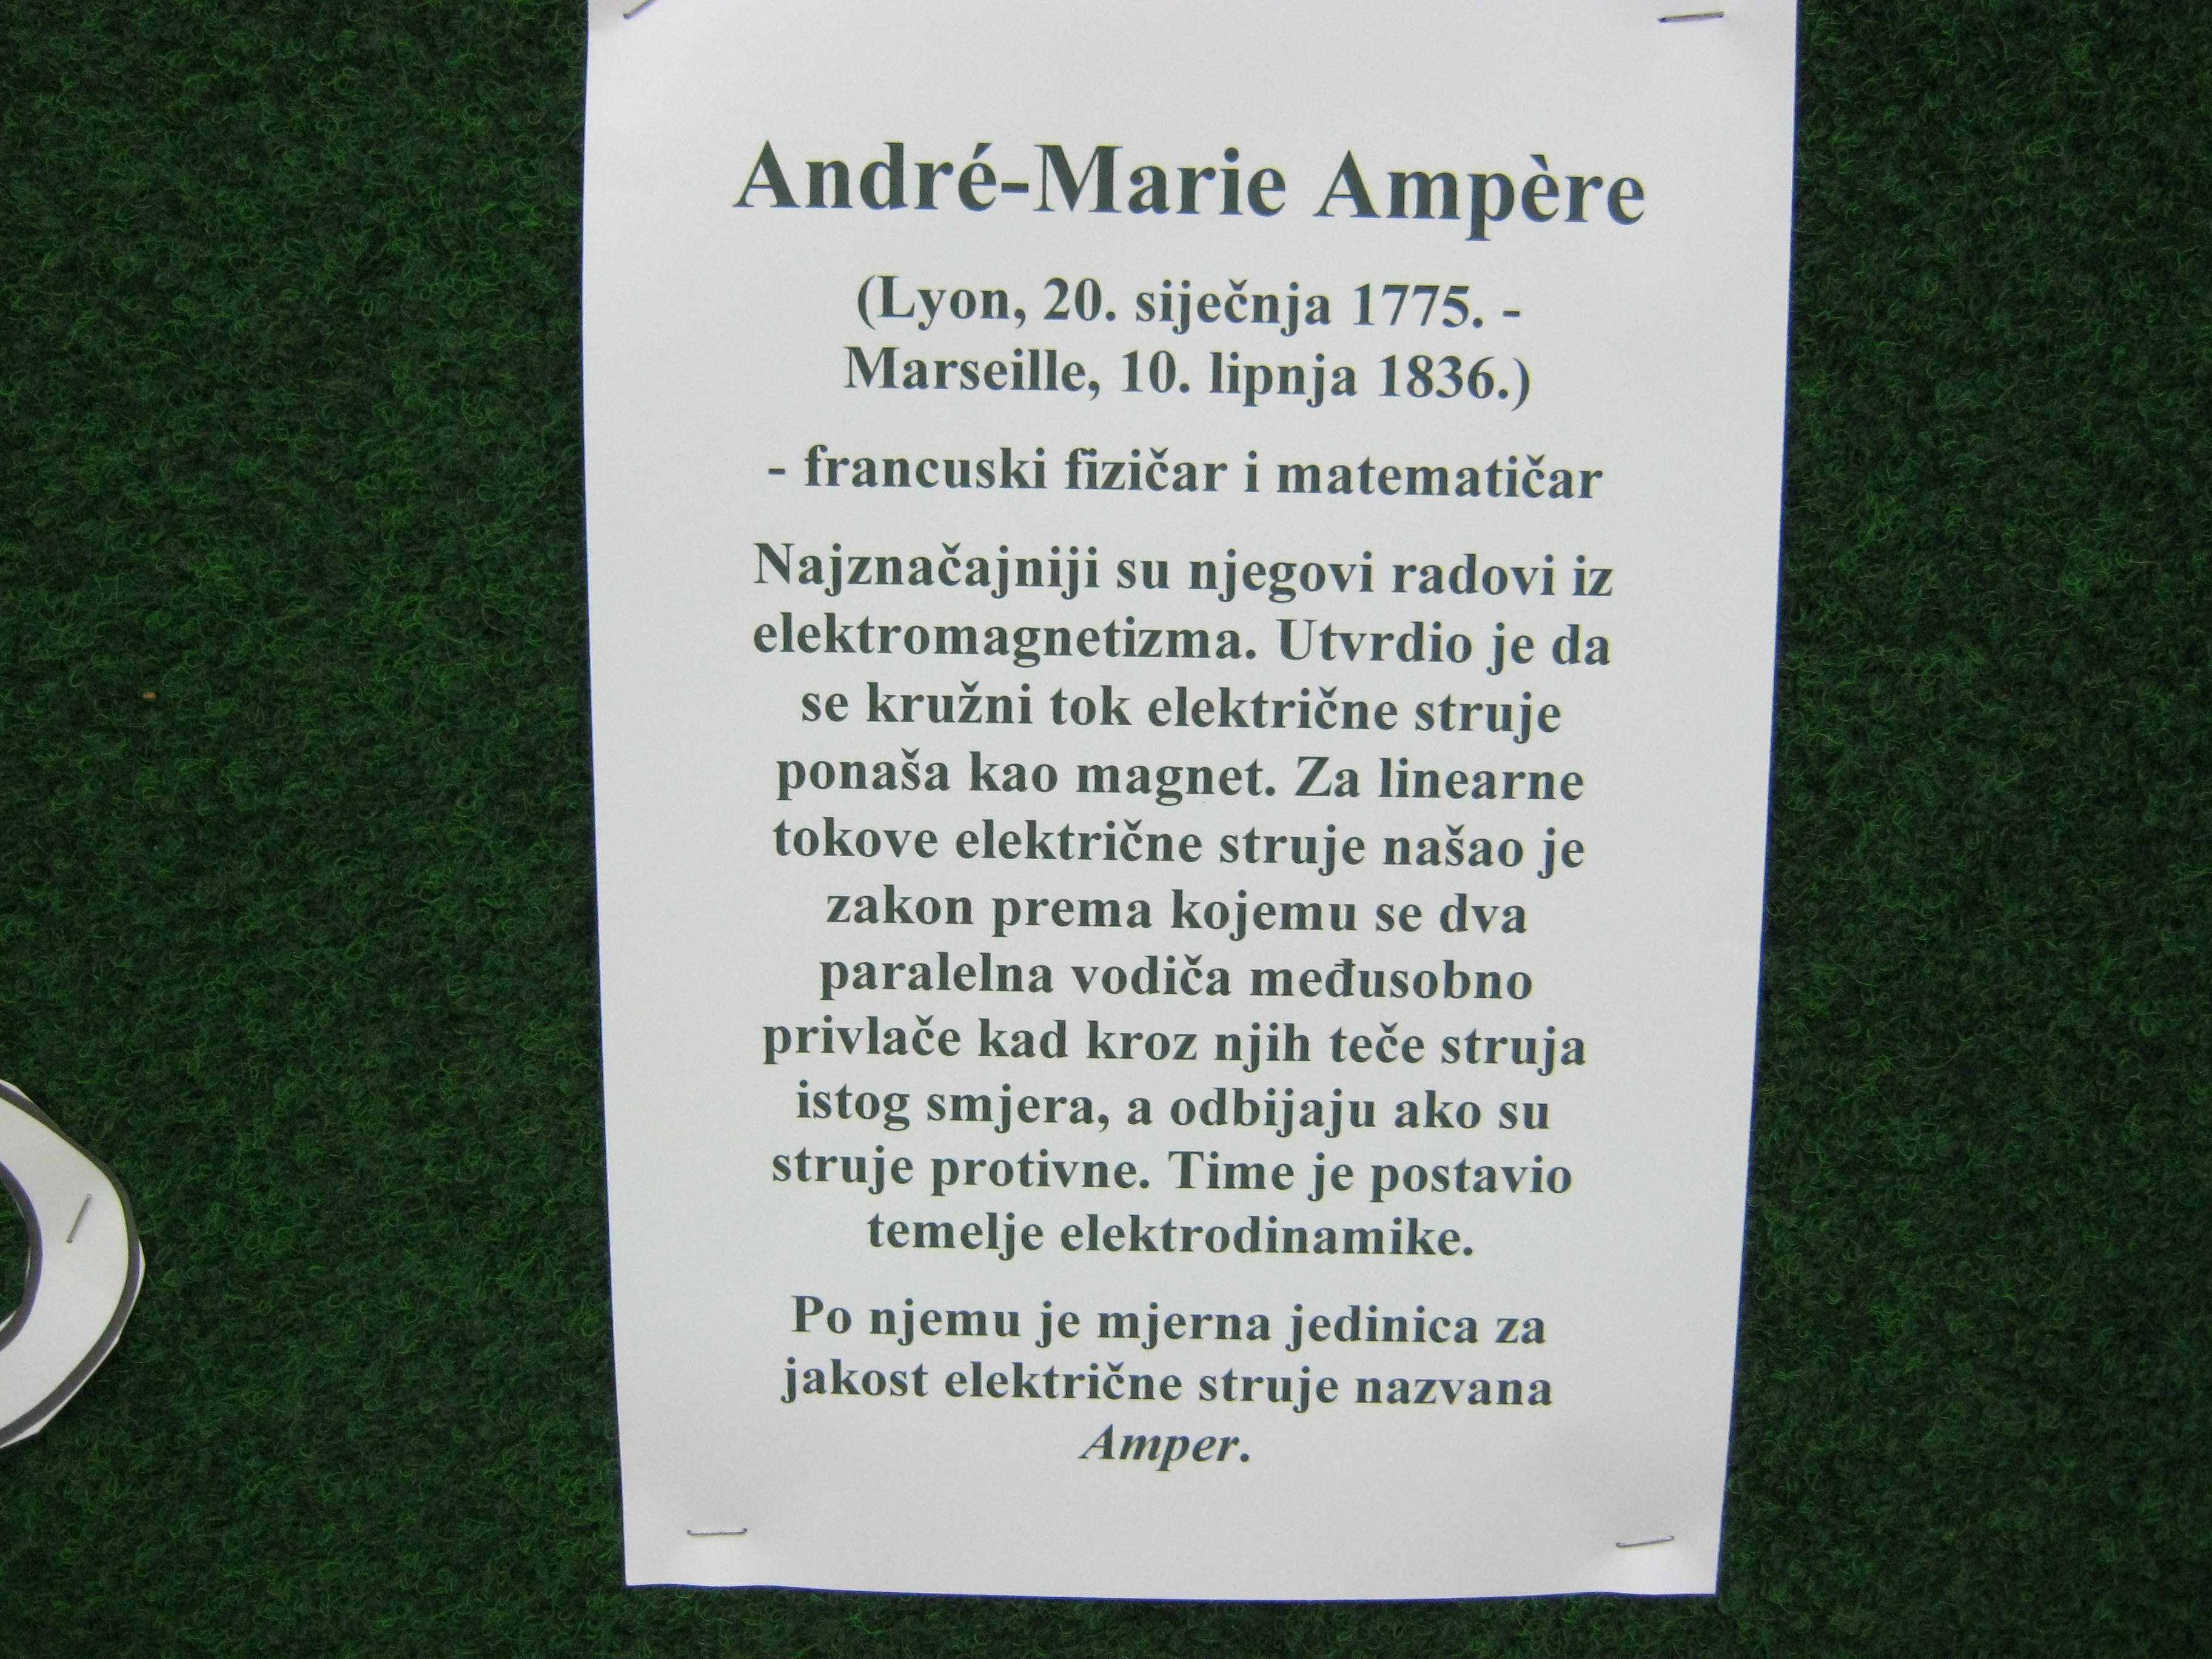 André-Marie Ampère
(Lyon, 20. siječnja 1775. -
Marseille, 10. lipnja 1836.)
- francuski fizičar i matematičar
Najznačajniji su njegovi radovi iz
elektromagnetizma. Utvrdio je da
se kružni tok električne struje
ponaša kao magnet. Za linearne
tokove električne struje našao je
zakon prema kojemu se dva
paralelna vodiča međusobno
privlače kad kroz njih teče struja
istog smjera, a odbijaju ako su
struje protivne. Time je postavio
temelje elektrodinamike.
Po njemu je mjerna jedinica za
jakost električne struje nazvana
Amper.